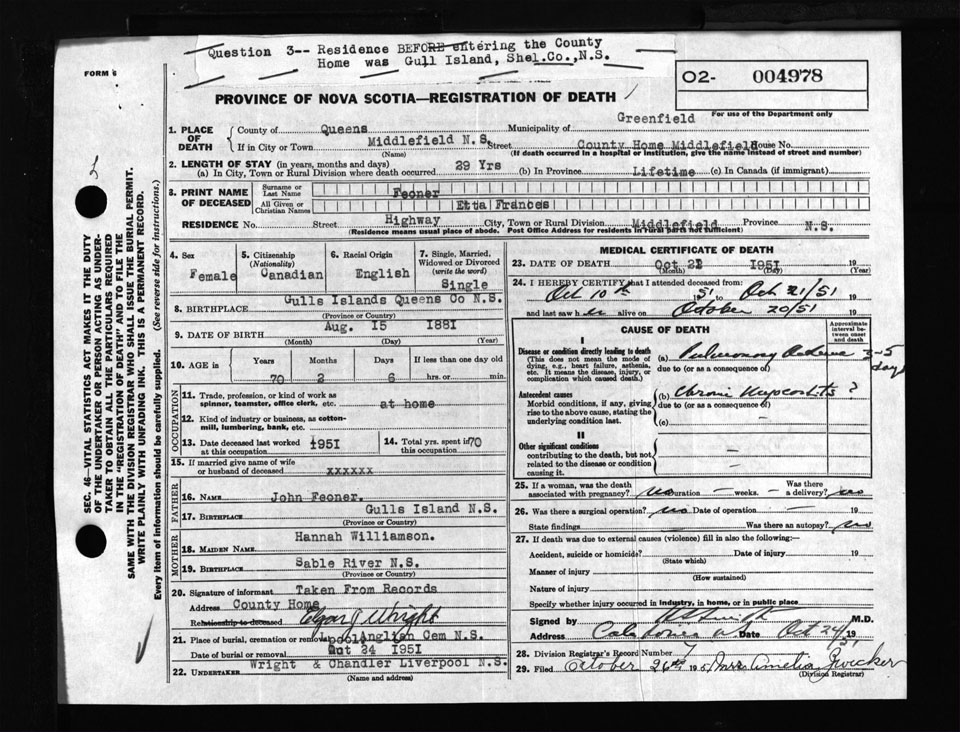 Question 3-- Residence BEFORE entering the County
Home was Gull Island, Shel.Co.,N.S.
FORM 6
O2- 004978
PROVINCE OF NOVA SCOTIA—REGISTRATION OF DEATH
For use of the Department only
1. PLACE OF DEATH { County of Queens Municipality of Greenfield
If in City or Town Middlefield N.S. Street County Home Middlefield House No.
(Name) (If death occurred in a hospital or institution, give the name instead of street and number)
2. LENGTH OF STAY (in years, months and days)
(a) In City, Town or Rural Division where death occurred 29 Yrs (b) In Province Lifetime (c) In Canada (if immigrant)
3. PRINT NAME OF DECEASED { Surname or Last Name Feoner
All Given or Christian Names Etta Frances
RESIDENCE No. Street Highway City, Town or Rural Division Middlefield Province N.S.
(Residence means usual place of abode. Post Office Address for residents in rural parts not sufficient)
4. Sex Female
5. Citizenship (Nationality) Canadian
6. Racial Origin English
7. Single, Married, Widowed or Divorced (write the word) Single
8. BIRTHPLACE Gulls Islands Queens Co N.S.
(Province or Country)
9. DATE OF BIRTH Aug. I5 I88I
(Month) (Day) (Year)
10. AGE in Years Months Days If less than one day old
70 2 6 hrs. or min.
OCCUPATION
11. Trade, profession, or kind of work as spinner, teamster, office clerk, etc. at home
12. Kind of industry or business, as cotton-mill, lumbering, bank, etc.
13. Date deceased last worked at this occupation I95I
14. Total yrs. spent in this occupation 70
15. If married give name of wife or husband of deceased xxxxxx
FATHER
16. NAME John Feoner.
17. BIRTHPLACE Gulls Island N.S.
(Province or Country)
MOTHER
18. MAIDEN NAME Hannah Williamson.
19. BIRTHPLACE Sable River N.S.
(Province or Country)
20. Signature of informant Taken From Records
Address County Home
Relationship to deceased Edgar J Wright
21. Place of burial, cremation or removal Lpool Anglian Cem N.S.
Date of burial or removal Oct 24 I95I
22. UNDERTAKER Wright & Chandler Liverpool N.S.
(Name and address)
MEDICAL CERTIFICATE OF DEATH
23. DATE OF DEATH Oct 2I I95I
(Month) (Day) (Year)
24. I HEREBY CERTIFY that I attended deceased from:
Oct 10th 51 to Oct 21/51 19
and last saw h er alive on October 20/51 19
CAUSE OF DEATH
Approximate interval between onset and death
I
Disease or condition directly leading to death
(This does not mean the mode of dying, e.g., heart failure, asthenia, etc. It means the disease, injury, or complication which caused death.)
(a) Pulmonary Oedema 3-5 days
due to (or as a consequence of)
Antecedent causes
Morbid conditions, if any, giving rise to the above cause, stating the underlying condition last.
(b) Chronic Myocarditis ?
due to (or as a consequence of)
(c) —
II
Other significant conditions
contributing to the death, but not related to the disease or condition causing it.
—
—
25. If a woman, was the death associated with pregnancy? no Duration — weeks. — Was there a delivery? no
26. Was there a surgical operation? no Date of operation —
State findings — Was there an autopsy? no
27. If death was due to external causes (violence) fill in also the following:—
Accident, suicide or homicide? Date of injury 19
(State which)
Manner of injury
(How sustained)
Nature of injury
Specify whether injury occurred in industry, in home, or in public place
Signed by Smith M.D.
Address Caledonia Date Oct 24/ 19 51
28. Division Registrar's Record Number 7
29. Filed October 26th, 1951 Mrs Amelia Zwicker
(Division Registrar)
SEC. 46—VITAL STATISTICS ACT MAKES IT THE DUTY
OF THE UNDERTAKER OR PERSON ACTING AS UNDER-
TAKER TO OBTAIN ALL THE PARTICULARS REQUIRED
IN THE "REGISTRATION OF DEATH" AND TO FILE THE
SAME WITH THE DIVISION REGISTRAR WHO SHALL ISSUE THE BURIAL PERMIT.
WRITE PLAINLY WITH UNFADING INK. THIS IS A PERMANENT RECORD.
Every item of information should be carefully supplied. (See reverse side for instructions.)